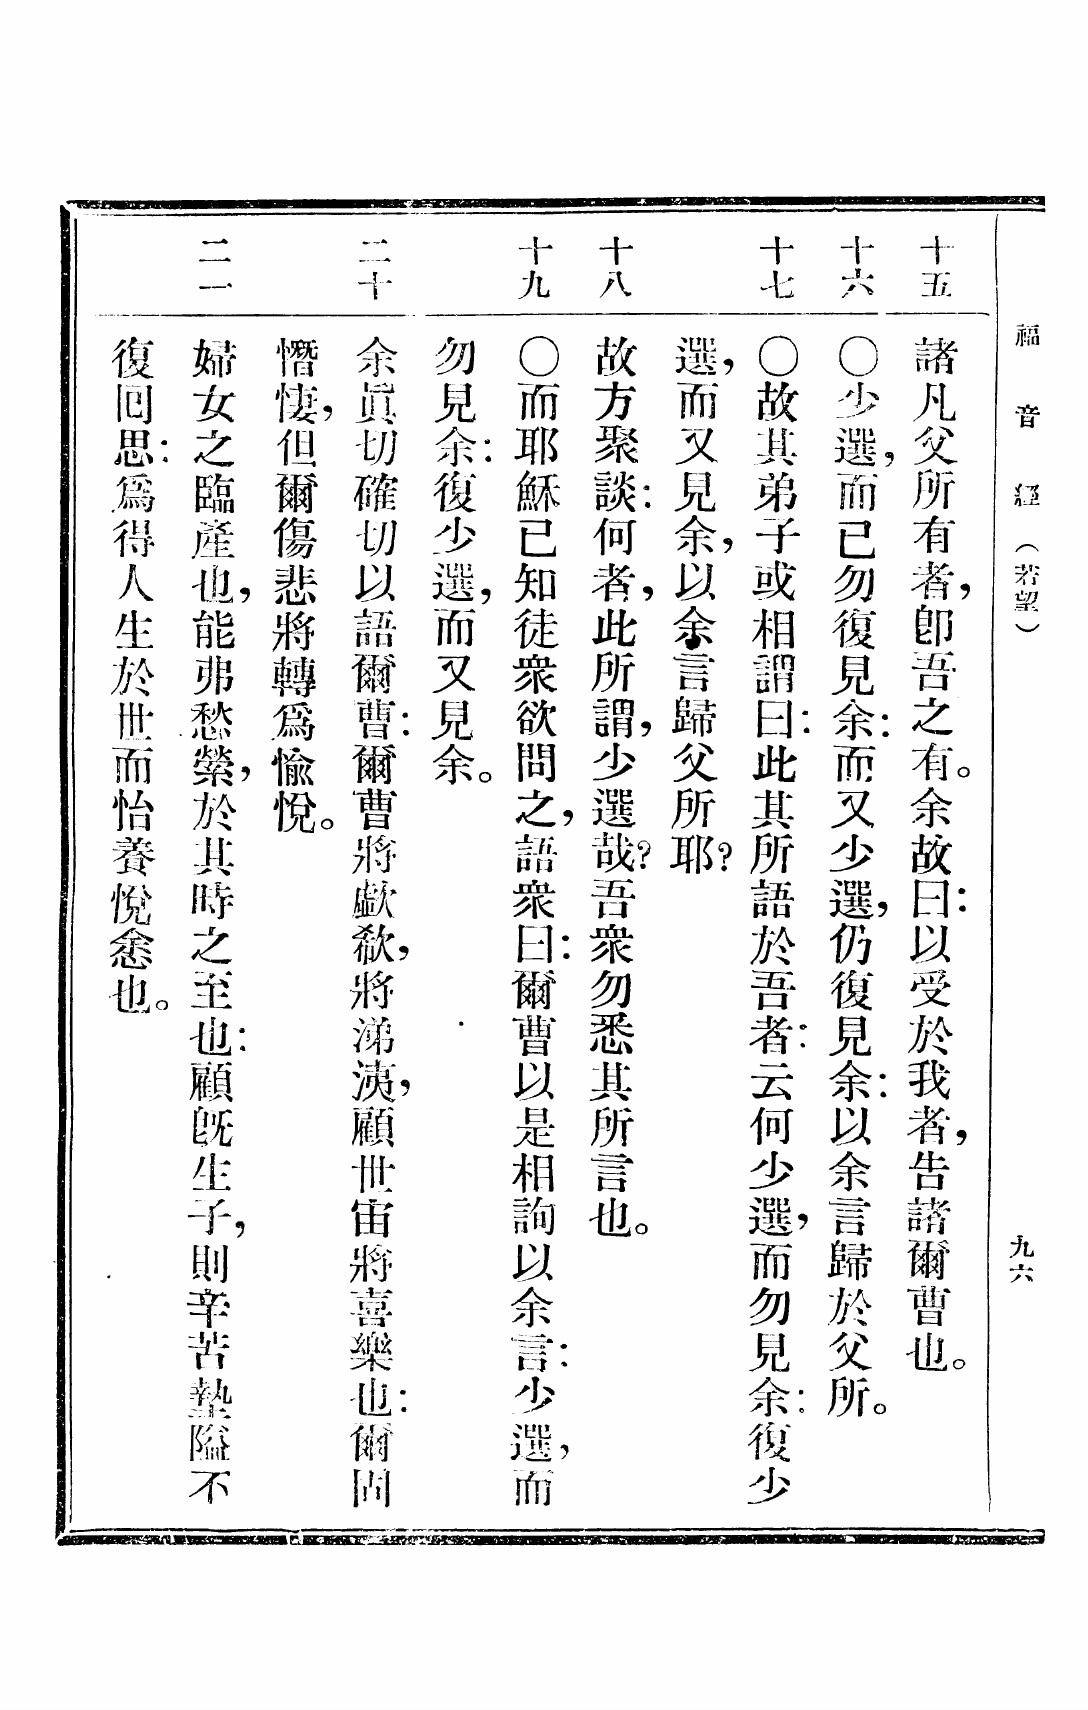 福音經（若望）
九六
十五
諸凡父所有者，卽吾之有。余故曰：以受於我者，告諸爾曹也。
十六
〇少選，而已勿復見余：而又少選，仍復見余：以余言歸於父所。
十七
〇故其弟子或相謂曰：此其所語於吾者：云何少選，而勿見余：復少
選，而又見余，以余言歸父所耶？
十八
故方聚談：何者，此所謂，少選哉？吾衆勿悉其所言也。
十九
〇而耶穌已知徒衆欲問之，語衆曰：爾曹以是相詢以余言：少選，而
勿見余：復少選，而又見余。
二十
余眞切確切以語爾曹：爾曹將歔欷，將涕洟，顧世宙將喜樂也：爾固
憯悽，但爾傷悲將轉爲愉悅。
二一
婦女之臨產也，能弗愁縈，於其時之至也：顧旣生子，則辛苦墊隘不
復回思：爲得人生於世而怡養悅悆也。